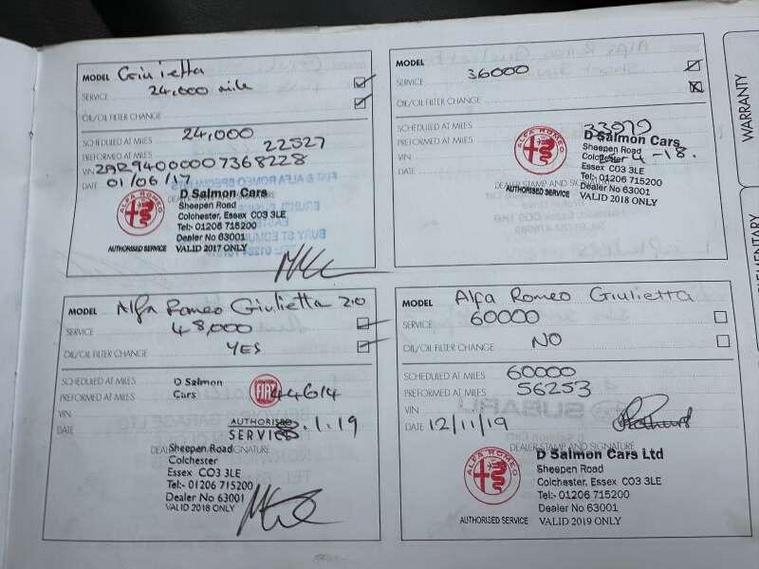 MODEL Giulietta
SERVICE 24,000 mile
OIL/OIL FILTER CHANGE
SCHEDULED AT MILES 24,000
PREFORMED AT MILES 22527
VIN ZAR94000007368228
DATE 01/06/17
ALFA ROMEO
D Salmon Cars
Sheepen Road
Colchester, Essex CO3 3LE
Tel:- 01206 715200
Dealer No 63001
AUTHORISED SERVICE VALID 2017 ONLY
MODEL
SERVICE 36000
OIL/OIL FILTER CHANGE
SCHEDULED AT MILES
PREFORMED AT MILES 33979
VIN
DATE 4-18.
ALFA ROMEO
D Salmon Cars
Sheepen Road
Colchester
Tel:- 01206 715200
Dealer No 63001
AUTHORISED SERVICE VALID 2018 ONLY
MODEL Alfa Romeo Giulietta 2.0
SERVICE 48,000
OIL/OIL FILTER CHANGE YES
SCHEDULED AT MILES
PREFORMED AT MILES 44614
VIN
DATE .1.19
D Salmon
Cars
FIAT
AUTHORISED
SERVICE
Sheepen Road
Colchester
Essex CO3 3LE
Tel:- 01206 715200
Dealer No 63001
VALID 2018 ONLY
MODEL Alfa Romeo Giulietta
SERVICE 60000
OIL/OIL FILTER CHANGE NO
SCHEDULED AT MILES 60000
PREFORMED AT MILES 56253
VIN
DATE 12/11/19
DEALER STAMP AND SIGNATURE
ALFA ROMEO
D Salmon Cars Ltd
Sheepen Road
Colchester, Essex CO3 3LE
Tel:- 01206 715200
Dealer No 63001
AUTHORISED SERVICE VALID 2019 ONLY
WARRANTY